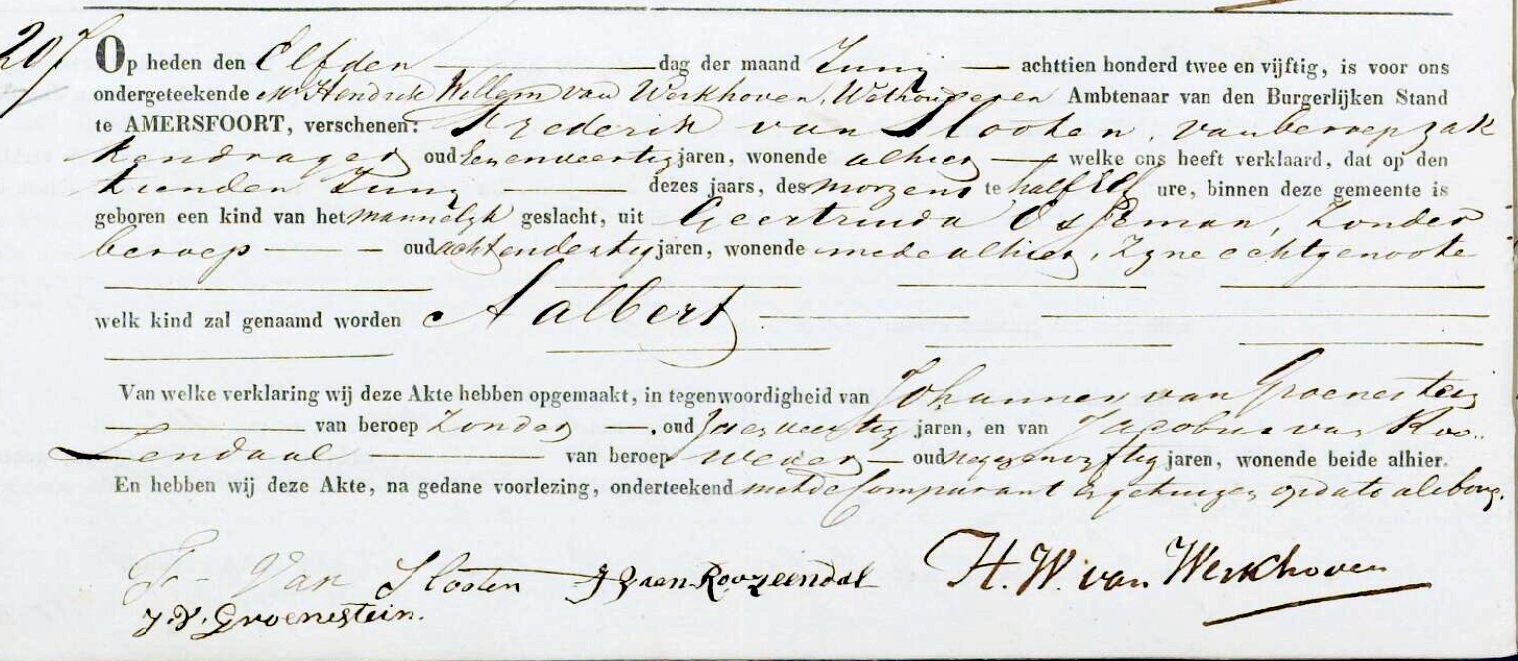 207
Op heden den Elfden dag der maand Juny achttien honderd twee en vijftig, is voor ons
ondergeteekende Mr Hendrik Willem van Werkhoven, Wethouder en Ambtenaar van den Burgerlijken Stand
te AMERSFOORT, verschenen: Frederik van Slooten, van beroep zak
kendrager oud Eenenveertig jaren, wonende alhier welke ons heeft verklaard, dat op den
tienden Juny dezes jaars, des morgens te half Elf ure, binnen deze gemeente is
geboren een kind van het mannelyk geslacht, uit Geertruida Osseman, Zonder
beroep oud achtendertig jaren, wonende mede alhier, Zyne echtgenoote
welk kind zal genaamd worden Aalbert
Van welke verklaring wij deze Akte hebben opgemaakt, in tegenwoordigheid van Johannes van Groenestein
van beroep Zonder, oud jaren, en van Jacobus van Roo..
Zendaal van beroep wever oud negenenvyftig jaren, wonende beide alhier.
En hebben wij deze Akte, na gedane voorlezing, onderteekend met de Comparant en getuigen op dato als boven.
F. Van Slooten J van Roozeendal H. W. van Werkhoven
J. V. Groenestein.